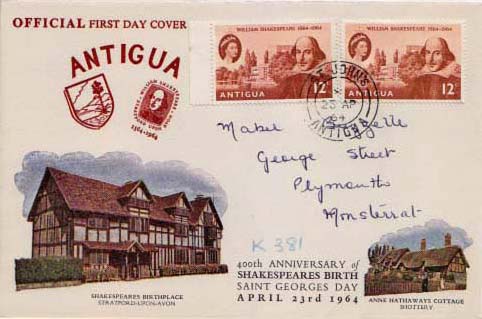 OFFICIAL FIRST DAY COVER
ANTIGUA
1564·1964
WILLIAM SHAKESPEARE 1564-1964
ANTIGUA 12c
WILLIAM SHAKESPEARE 1564-1964
ANTIGUA 12c
ST. JOHN'S
23 AP
64
ANTIGUA
Mabel
George Street
Plymouth
Monsterrat
K 381
400th ANNIVERSARY of
SHAKESPEARES BIRTH
SAINT GEORGES DAY
APRIL 23rd 1964
SHAKESPEARES BIRTHPLACE
STRATFORD-UPON-AVON
ANNE HATHAWAYS COTTAGE
SHOTTERY